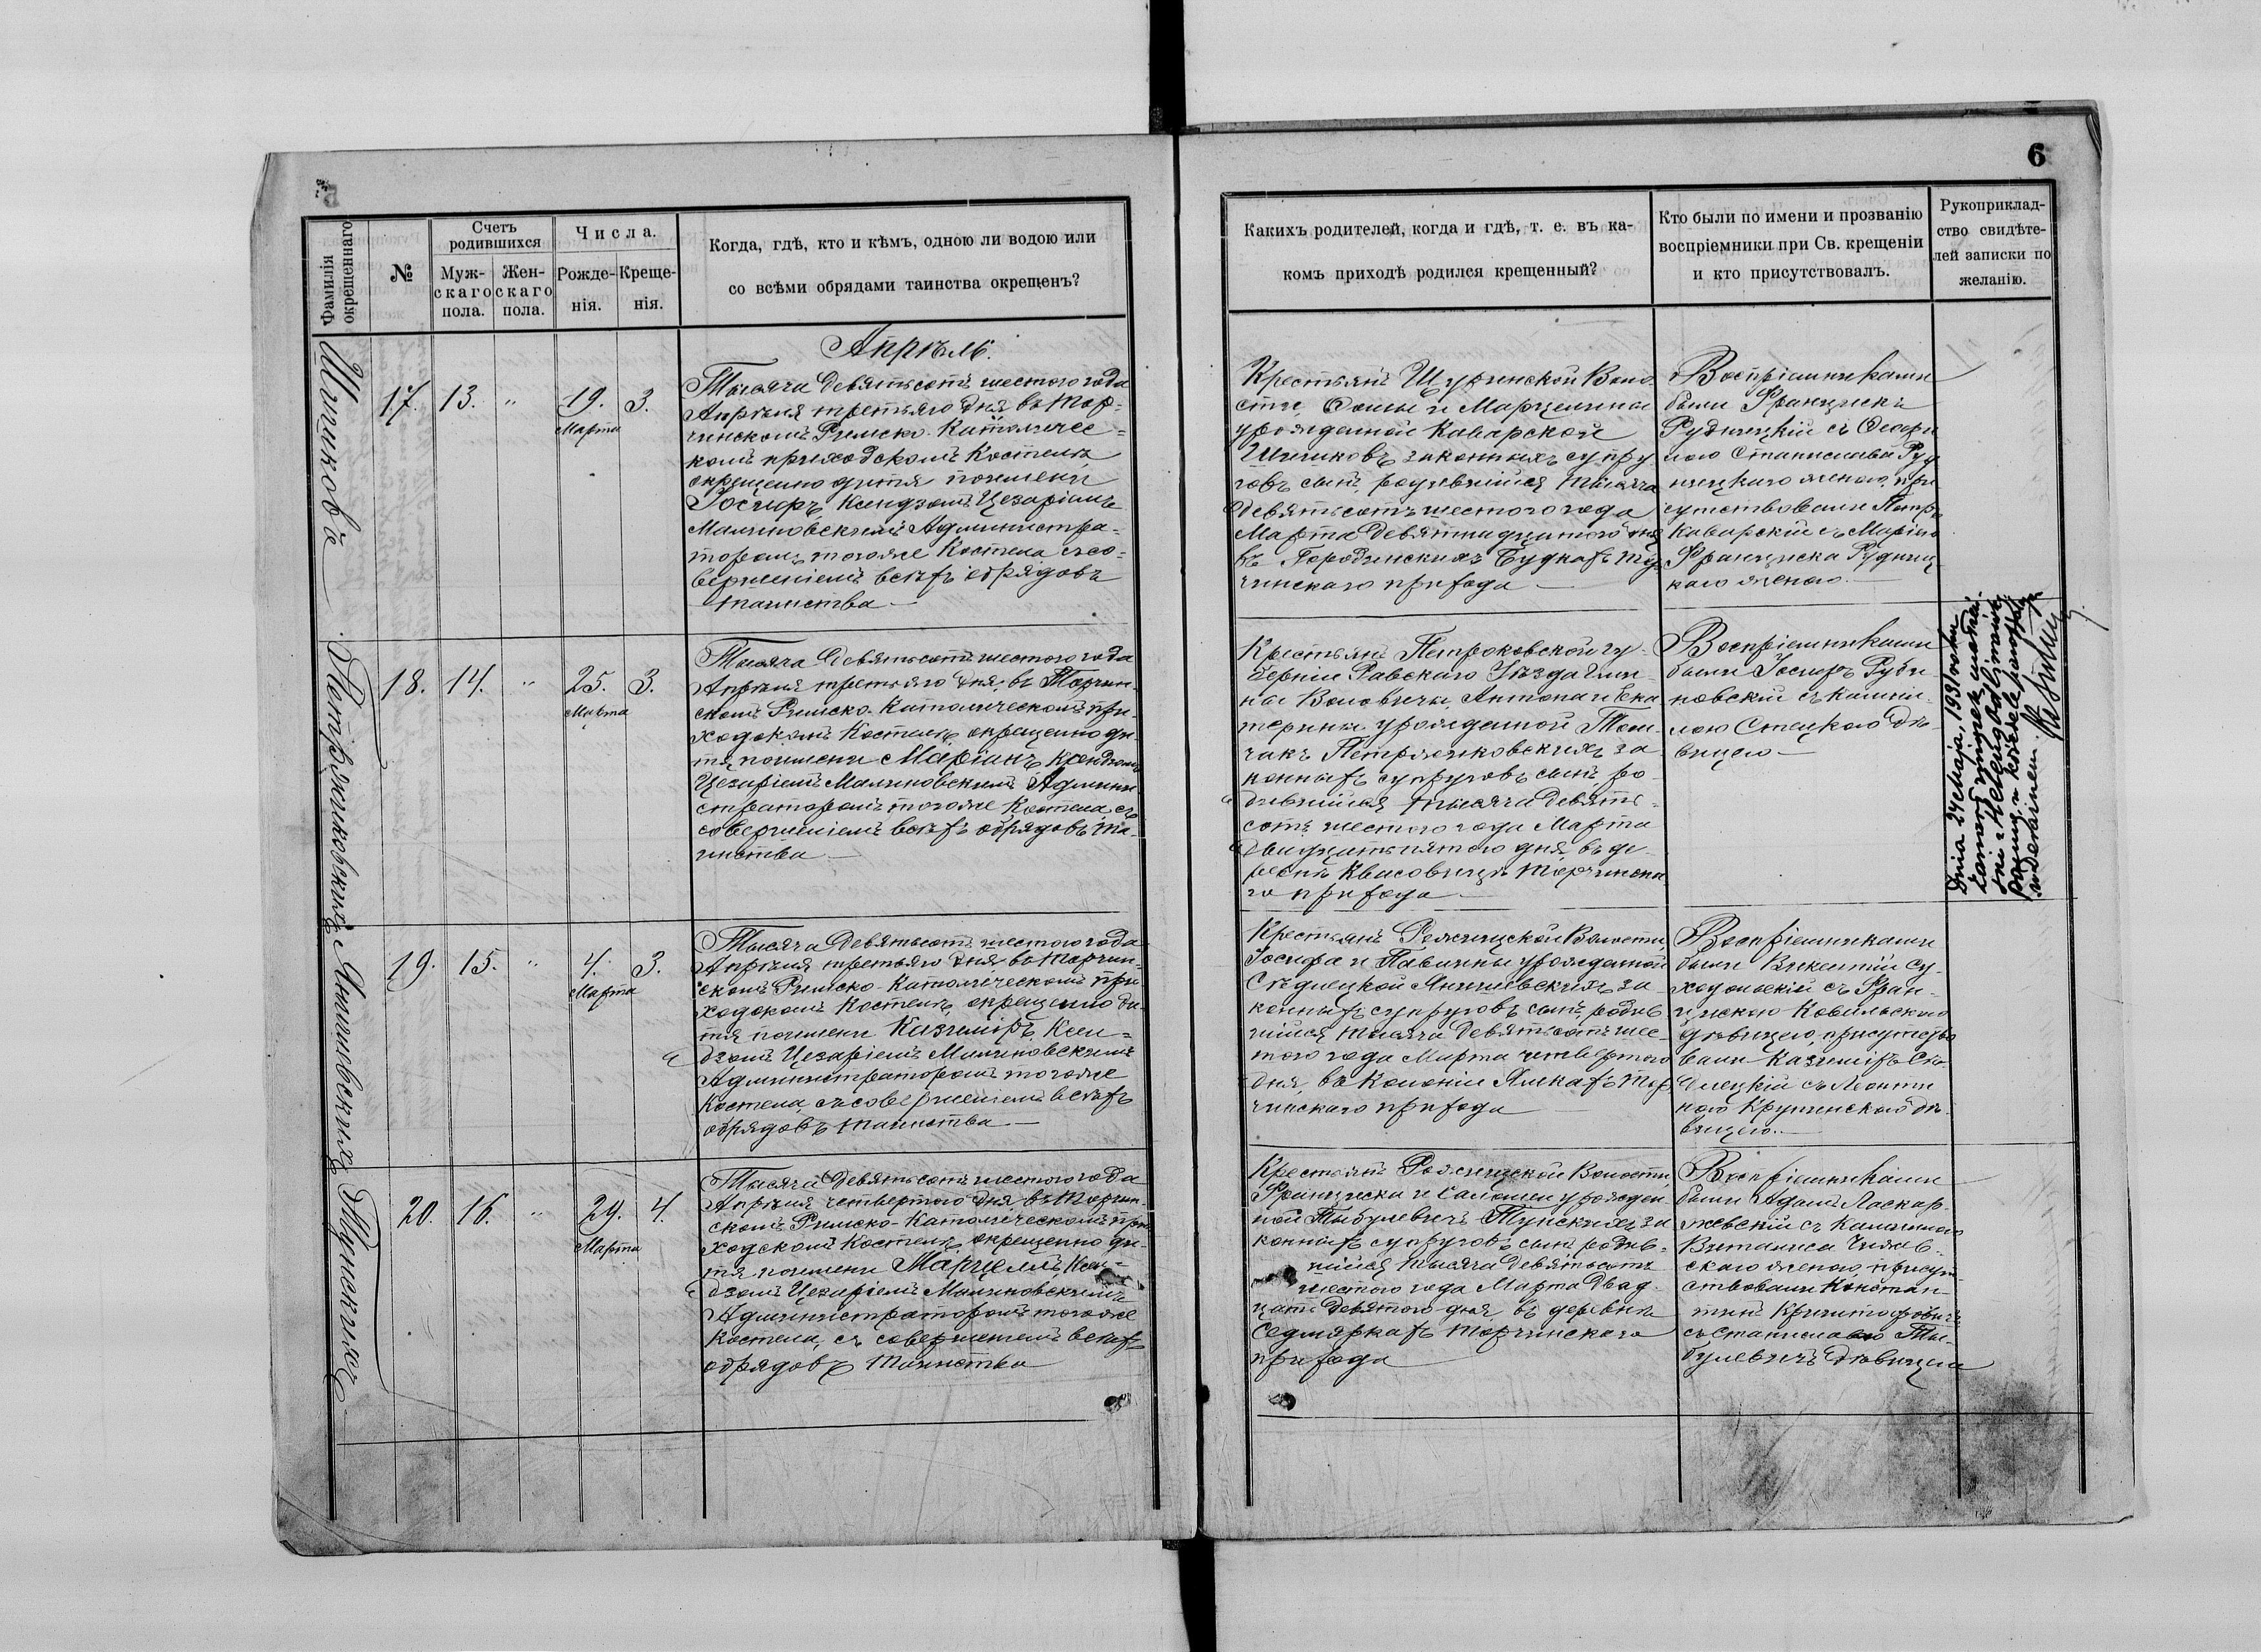 6
Фамилія окрещеннаго
№
Счетъ родившихся
Муж-скаго пола.
Жен-скаго пола.
Числа.
Рожде-нія.
Креще-нія.
Когда, гдѣ, кто и кѣмъ, одною ли водою или
со всѣми обрядами таинства окрещенъ?
Какихъ родителей, когда и гдѣ, т. е. въ ка-
комъ приходѣ родился крещенный?
Кто были по имени и прозванію
воспріемники при Св. крещеніи
и кто присутствовалъ.
Рукоприклад-
ство свидѣте-
лей записки по
желанію.
Апрѣль.
17. 13. " 19. Марта 3.
Тысяча девятьсотъ шестого года
Апрѣля третьяго дня, въ Тор-
чинскомъ Римско-Католичес-
комъ приходскомъ Костелѣ
окрещено дитя по имени
Іосифъ, Ксендзомъ Цезаріемъ
Малиновскимъ Администра-
торомъ тогоже Костела съ со-
вершеніемъ всѣхъ обрядовъ
таинства —
Крестьянъ Щуринской Воло-
сти, Фомы и Марцелины
урожденной Каварской
законныхъ супру-
говъ сынъ, родившійся тысяча
девятьсотъ шестого года
Марта девятнадцатого дня
въ Городинскихъ Будкахъ Тор-
чинскаго прихода —
Воспріемниками
были Францискъ
Рудницкій съ
Станислава Руд
ницкаго женою, при
сутствовали Петръ
Каварскій съ Маріею
Франциска Рудниц
каго женою. —
Петржиковскихъ
18. 14. " 25. Марта 3.
Тысяча девятьсотъ шестого года
Апрѣля третьяго дня, въ Торчин-
скомъ Римско-Католическомъ при-
ходскомъ Костелѣ, окрещено ди-
тя по имени Маріанъ, Ксендзомъ
Цезаріемъ Малиновскимъ Админи
страторомъ тогоже Костела, съ
совершеніемъ всѣхъ обрядовъ та-
инства —
Крестьянъ Петроковской гу-
берніи Равскаго Уѣзда Гмин-
ны Воловичи, Антона и Ека
терины урожденной
Петржиковскихъ за
конныхъ супруговъ сынъ, ро-
дившійся тысяча девять-
сотъ шестого года Марта
двадцать пятого дня, въ де-
ревнѣ Квасовицѣ Торчинска
го прихода —
Воспріемниками
были Іосифъ Руби
новскій съ Камил-
лою Стецкою дѣ-
вицею —
Dnia 24 maja, 1931 roku
zawarł związek małżeń-
ski z
w kościele parafjalnym
Янишевскихъ
19. 15. " 4. Марта 3.
Тысяча девятьсотъ шестого года
Апрѣля третьяго дня въ Торчин-
скомъ Римско-Католическомъ при
ходскомъ Костелѣ, окрещено ди-
тя по имени Казиміръ, Ксен-
дзомъ Цезаріемъ Малиновскимъ
Администраторомъ тогоже
Костела, съ совершеніемъ всѣхъ
обрядовъ таинства —
Крестьянъ Рожищской Волости,
Іосифа и Павлины урожденной
Сѣдлецкой Янишевскихъ за-
конныхъ супруговъ сынъ, родив
шійся тысяча девятьсотъ шес-
того года Марта четвертого
дня, въ Колоніи Ялкахъ Тор
чинскаго прихода —
Воспріемниками
были Викентій Су-
ходольскій съ Фран-
цискою Ковальскою
дѣвицею, присутство
вали Казиміръ Сѣ
длецкій съ Леонти
ною Крушинскою дѣ-
вицею. —
Тунскихъ
20. 16. " 29. Марта 4.
Тысяча девятьсотъ шестого года
Апрѣля четвертого дня, въ Торчин-
скомъ Римско-Католическомъ при
ходскомъ Костелѣ, окрещено ди-
тя по имени Марцелій, Ксен-
дзомъ Цезаріемъ Малиновскимъ
Администраторомъ тогоже
Костела, съ совершеніемъ всѣхъ
обрядовъ таинства
Крестьянъ Рожищской Волости,
Франциска и Саломеи урожден
ной Тыбулевичъ Тунскихъ за
конныхъ супруговъ сынъ, родив-
шійся тысяча девятьсотъ
шестого года Марта двад-
цать девятого дня, въ деревнѣ
Седмяркахъ Торчинскаго
прихода —
Воспріемниками
были Адамъ Ласкар-
жевскій съ
скаго женою, присут-
ствовали Констан-
тинъ Криштофовичъ
съ Станиславою Ты-
булевичъ дѣвицею